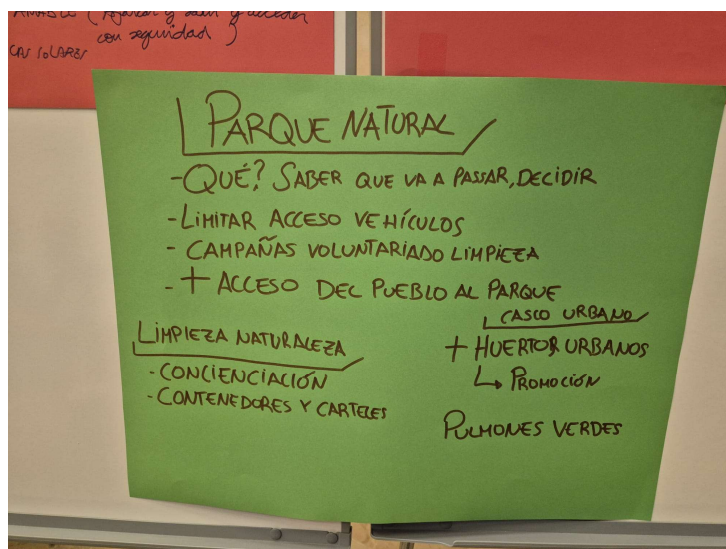 con seguridad)
PARQUE NATURAL
-QUÉ? SABER QUE VA A PASSAR, DECIDIR
-LIMITAR ACCESO VEHÍCULOS
- CAMPAÑAS VOLUNTARIADO LIMPIEZA
- + ACCESO DEL PUEBLO AL PARQUE
LIMPIEZA NATURALEZA
- CONCIENCIACIÓN
- CONTENEDORES Y CARTELES
CASCO URBANO
+ HUERTOS URBANOS
↳ PROMOCIÓN
PULMONES VERDES